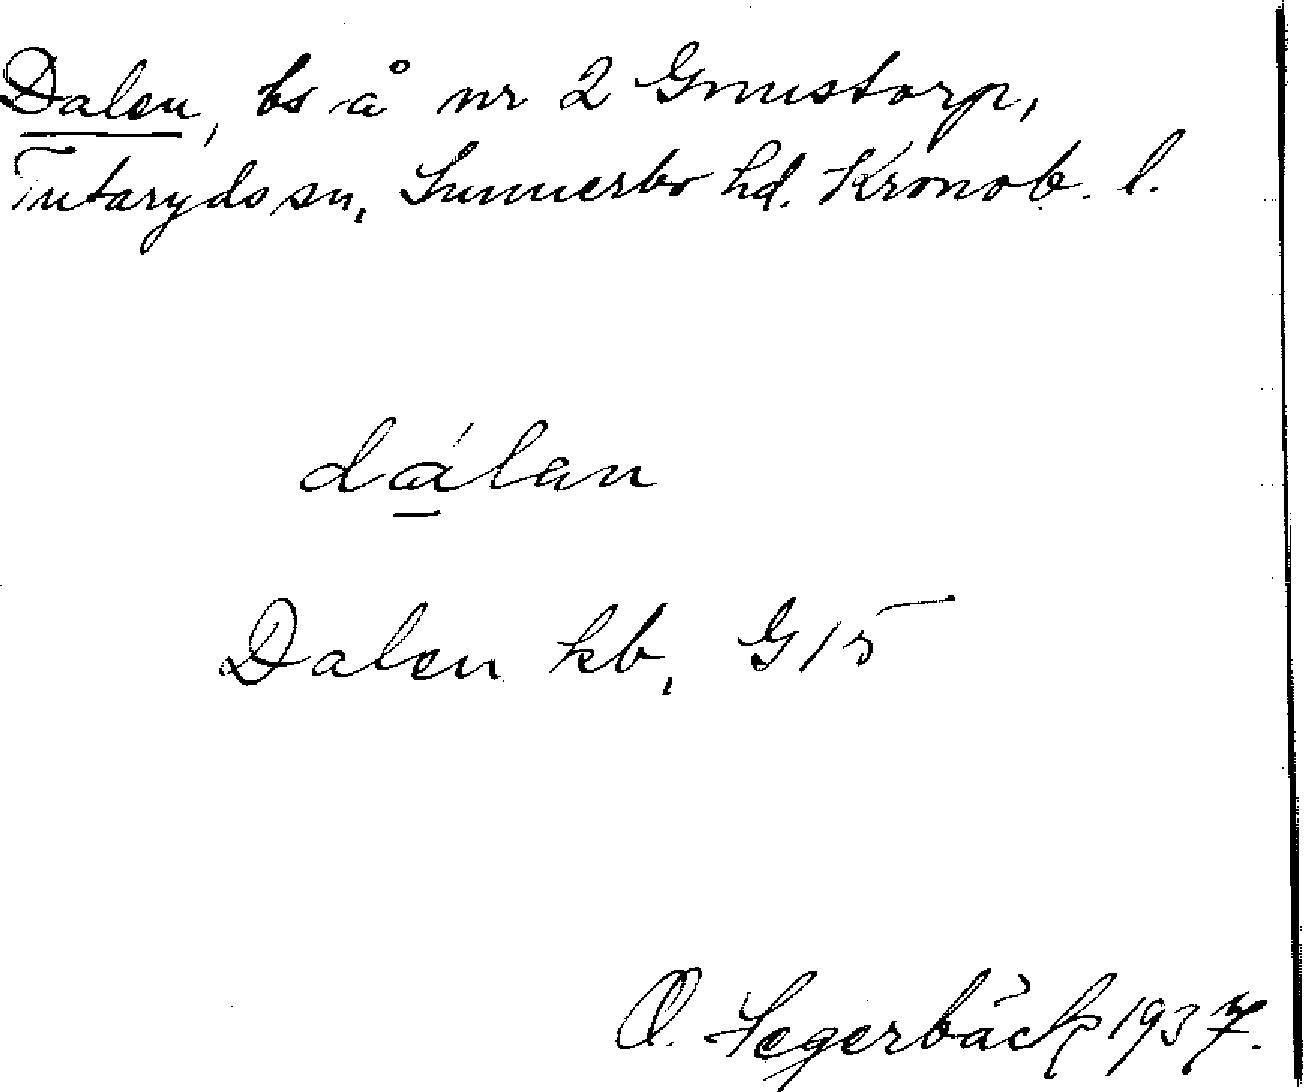 Dalen, bs å nr 2 Gnustorp,
Tutaryds sn, Sunnerbo hd. Kronob. l.
dálan
Dalen kb, G 15
O. Segerbäck 1937.